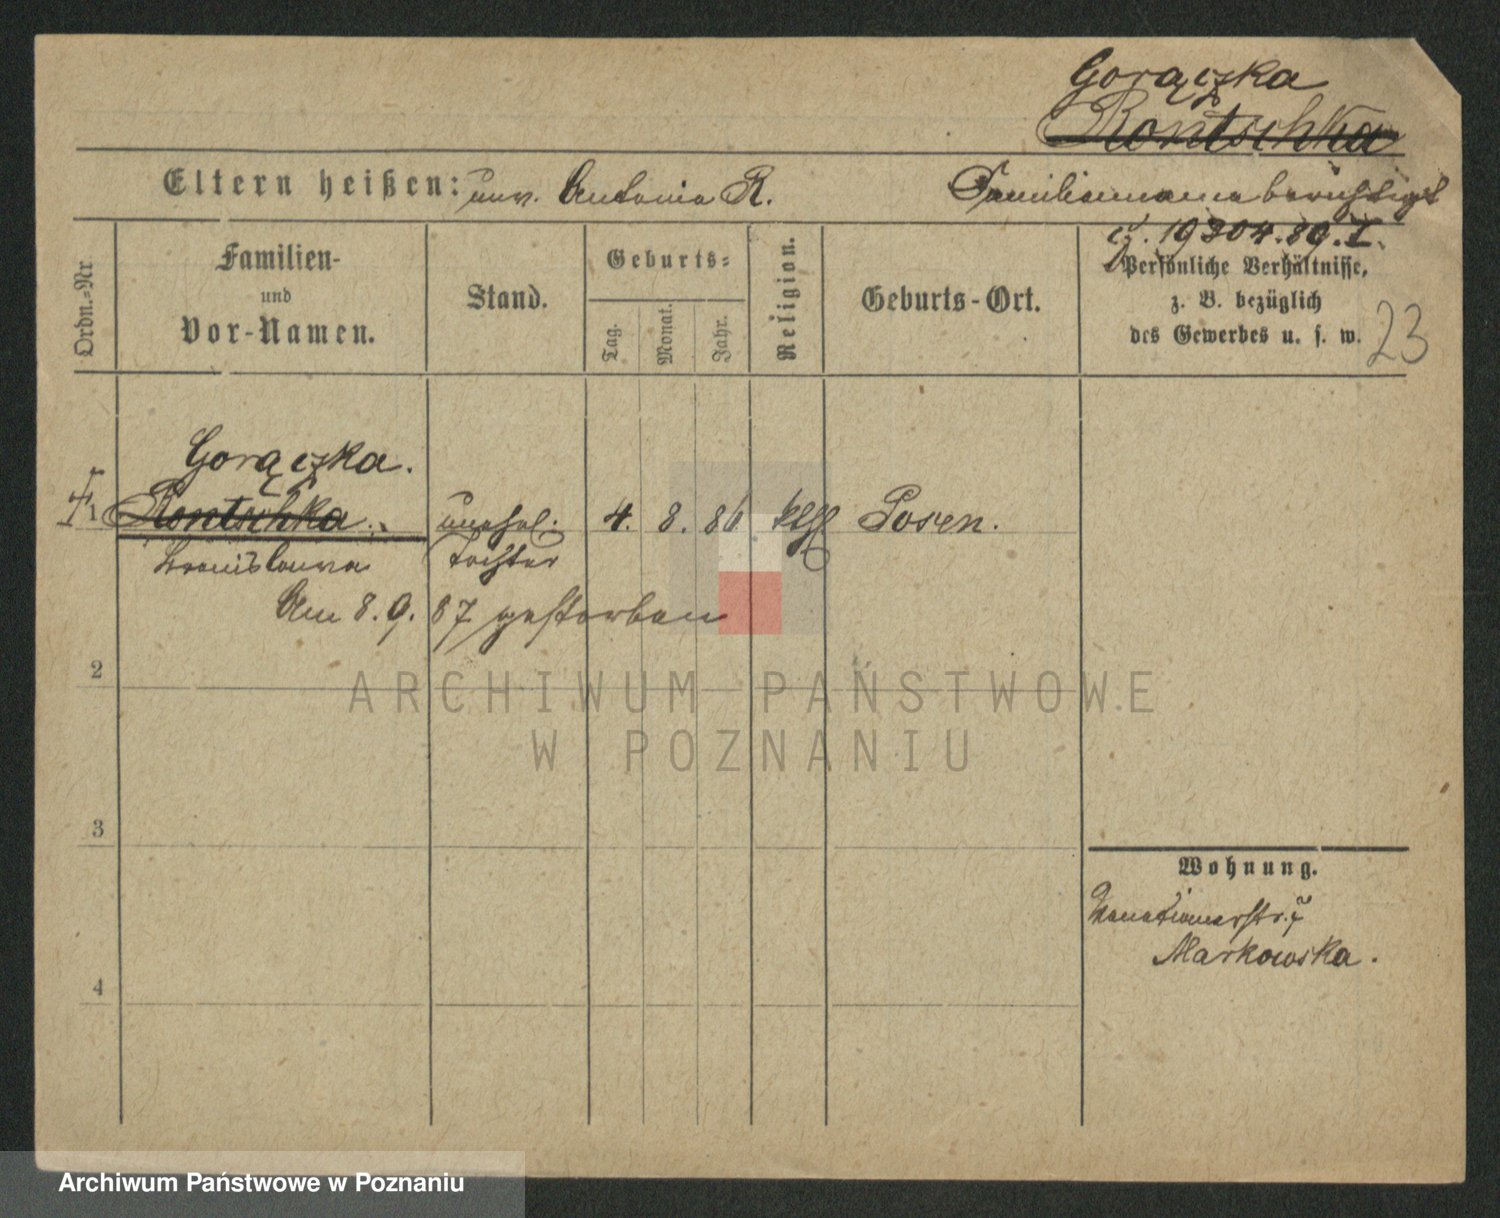 Gorączka
Rontschka
Eltern heißen: unv. Antonia R. Familienname berichtigt
cf. 19304.89.I.
Ordn.-Nr
Familien-
und
Vor-Namen.
Stand.
Geburts-
Tag.
Monat.
Jahr.
Religion.
Geburts-Ort.
Persönliche Verhältnisse,
z. B. bezüglich
des Gewerbes u. s. w.
23
Gorączka.
† 1 Rontschka. unehel. 4. 8. 86 kth Posen.
Bronislawa Tochter
Am 8.9.87 gestorben
2
3
4
Wohnung.
7
Markowska.
ARCHIWUM PAŃSTWOWE
W POZNANIU
Archiwum Państwowe w Poznaniu